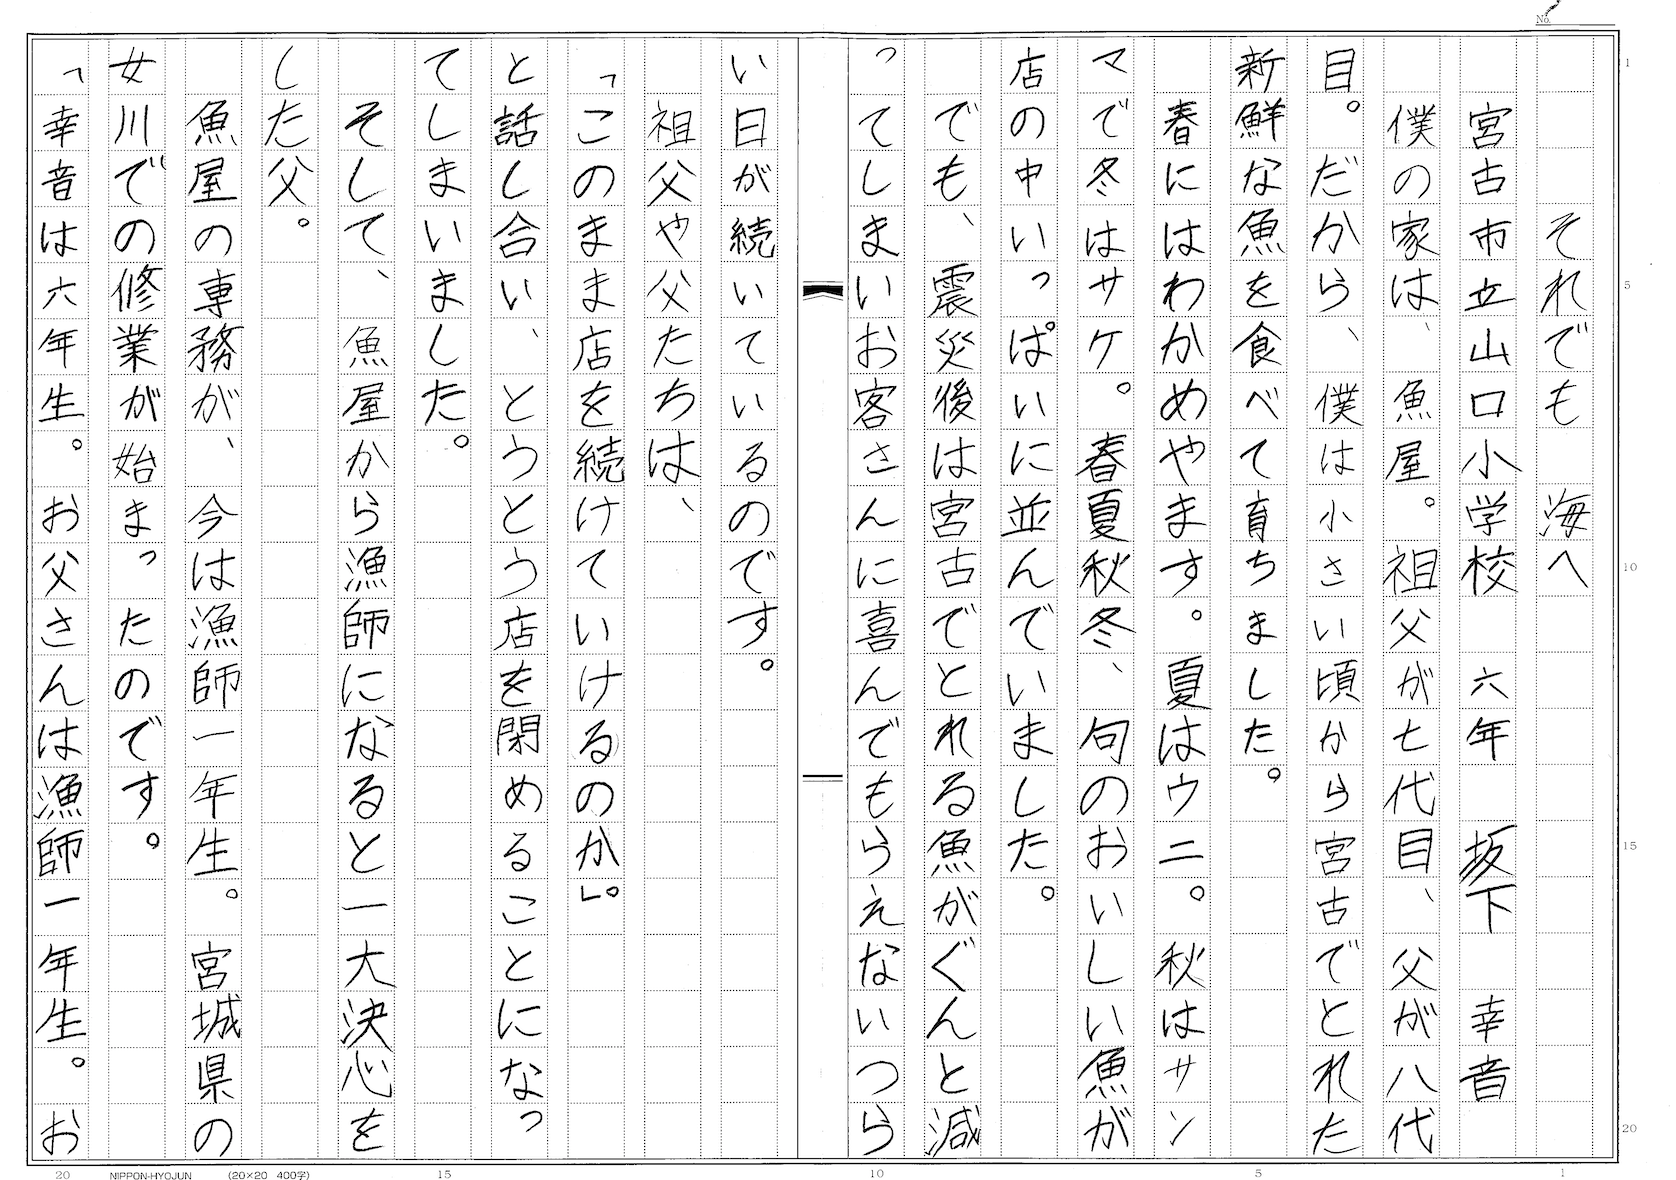 No.
それでも　海へ
宮古市立山口小学校　六年　坂下　幸音
僕の家は、魚屋。祖父が七代目、父が八代
目。だから、僕は小さい頃から宮古でとれた
新鮮な魚を食べて育ちました。
春にはわかめやます。夏はウニ。秋はサン
マで冬はサケ。春夏秋冬、旬のおいしい魚が
店の中いっぱいに並んでいました。
でも、震災後は宮古でとれる魚がぐんと減
ってしまいお客さんに喜んでもらえないつら
い日が続いているのです。
祖父や父たちは、
「このまま店を続けていけるのか」。
と話し合い、とうとう店を閉めることになっ
てしまいました。
そして、魚屋から漁師になると一大決心を
した父。
魚屋の専務が、今は漁師一年生。宮城県の
女川での修業が始まったのです。
「幸音は六年生。お父さんは漁師一年生。お
1
5
10
15
20
20
NIPPON-HYOJUN　（20×20　400字）
15
10
5
1